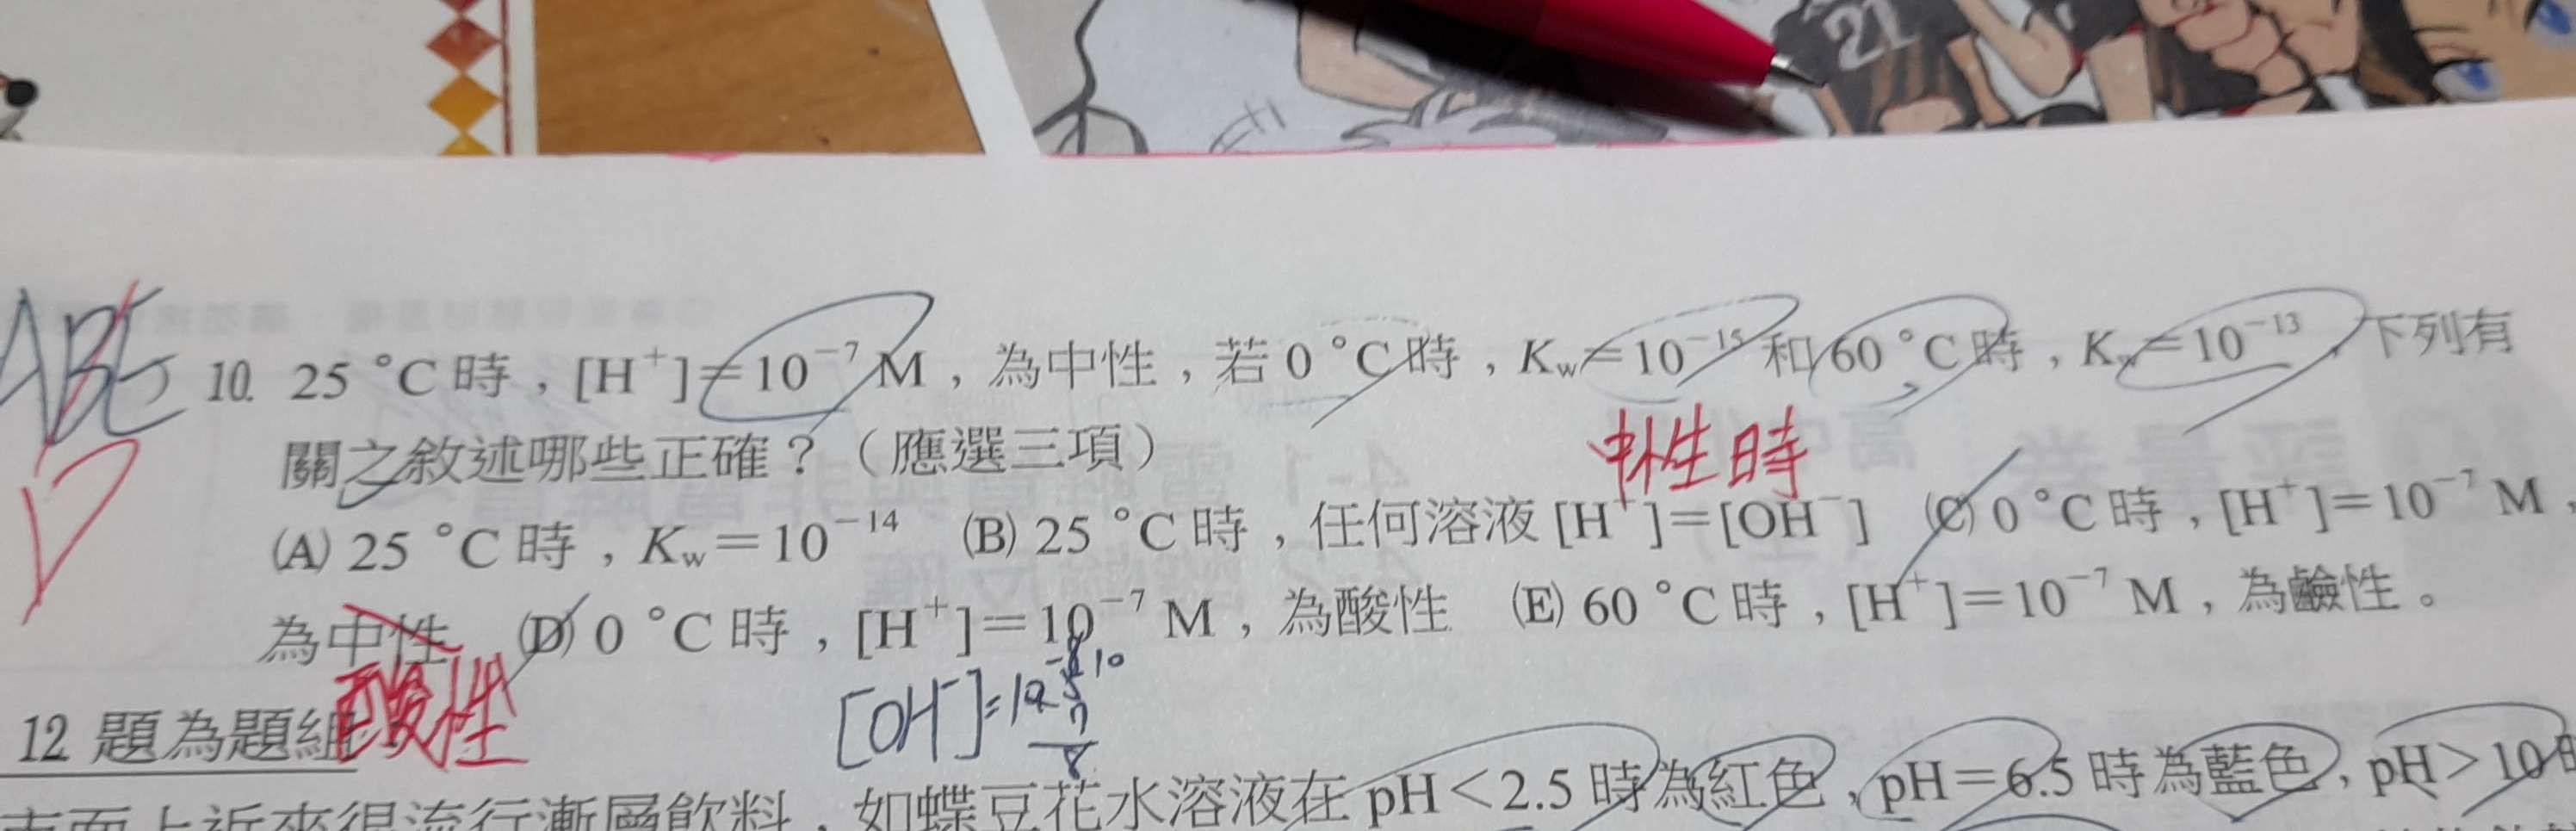 21
ABE
D
10. 25 °C 時，[H⁺]=10⁻⁷ M，為中性，若 0 °C 時，Kw=10⁻¹⁵ 和 60 °C 時，Kw=10⁻¹³，下列有
關之敘述哪些正確？（應選三項）
中性時
(A) 25 °C 時，Kw=10⁻¹⁴ (B) 25 °C 時，任何溶液 [H⁺]=[OH⁻] (C) 0 °C 時，[H⁺]=10⁻⁷ M，
為中性 (D) 0 °C 時，[H⁺]=10⁻⁷ M，為酸性 (E) 60 °C 時，[H⁺]=10⁻⁷ M，為鹼性。
酸性
[OH⁻]=10⁻⁸
12 題為題組
市面上近來很流行漸層飲料，如蝶豆花水溶液在 pH<2.5 時為紅色，pH=6.5 時為藍色，pH>10 時